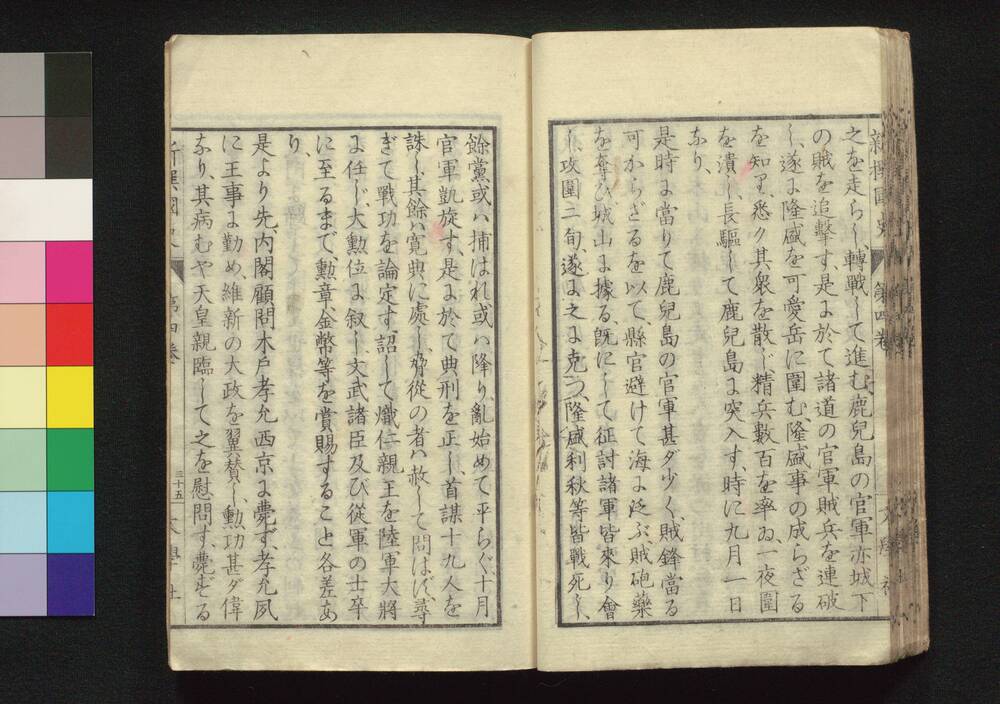 新撰國史 第四卷 文學社
之を走らし、轉戰して進む、鹿兒島の官軍亦城下
の賊を追擊す、是に於て諸道の官軍賊兵を連破
し、遂に隆盛を可愛岳に圍む、隆盛事の成らざる
を知り、悉ク其衆を散じ精兵數百を率ゐ、一夜圍
を潰し、長驅して鹿兒島に突入す、時に九月一日
なり、
是時に當りて鹿兒島の官軍甚ダ少く、賊鋒當る
可からざるを以て、縣官避けて海に泛ぶ、賊砲藥
を奪ひ、城山に據る、既にして征討諸軍皆來り會
し、攻圍二旬、遂に之に克つ、隆盛利秋等皆戰死し、
餘黨或ハ捕はれ或ハ降り、亂始めて平らぐ、十月
官軍凱旋す、是に於て典刑を正し首謀十九人を
誅し、其餘ハ寬典に處し、脅從の者ハ赦して問はず、尋
ぎて戰功を論定す、詔して熾仁親王を陸軍大將
に任じ、大勳位に叙し、文武諸臣及び從軍の士卒
に至るまで勳章金幣等を賞賜すること各差あ
り、
是より先、内閣顧問木戸孝允西京に薨ず、孝允夙
に王事に勤め、維新の大政を翼賛し、勳功甚ダ偉
なり、其病むや天皇親臨して之を慰問す、薨ずる
新撰國史 第四卷 三十五 文學社